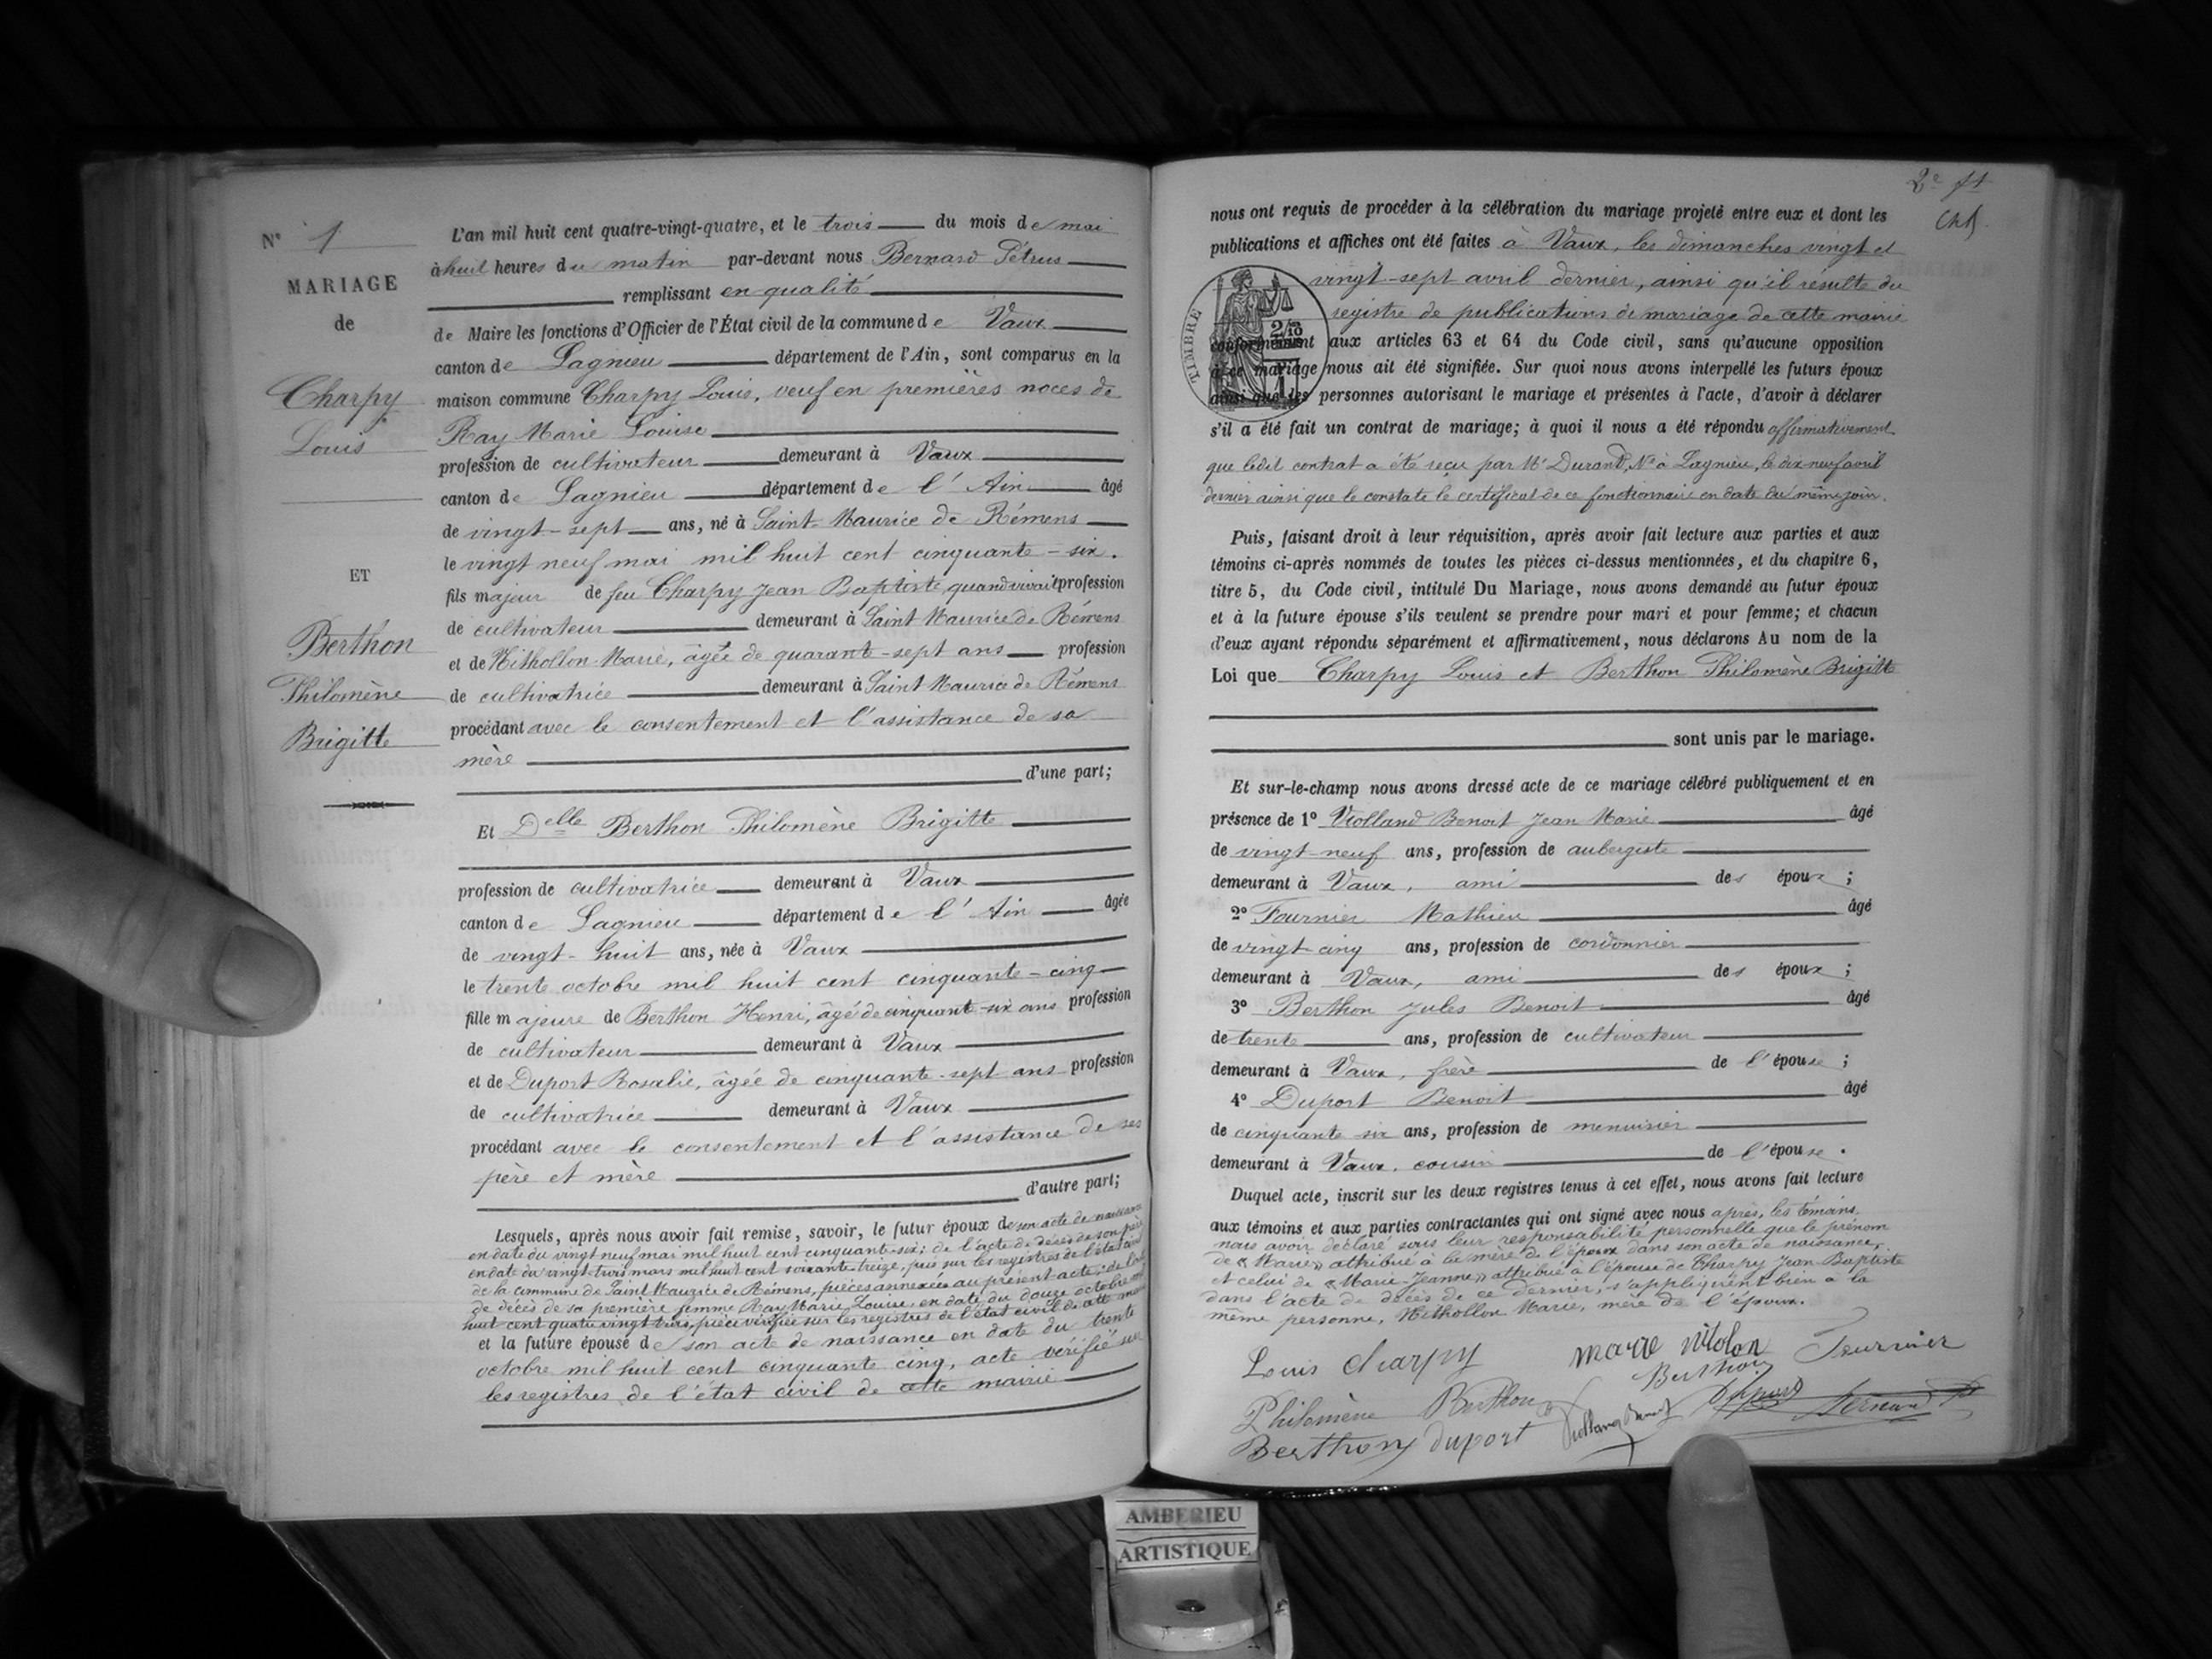 N° 1
MARIAGE
de
Charpy
Louis
ET
Berthon
Philomène
Brigitte
L'an mil huit cent quatre-vingt-quatre, et le trois du mois de mai
à huit heures du matin par-devant nous Bernard Pétrus
remplissant en qualité
de Maire les fonctions d'Officier de l'État civil de la commune de Vaux
canton de Lagnieu département de l'Ain, sont comparus en la
maison commune Charpy Louis, veuf en premières noces de
Ray Marie Louise
profession de cultivateur demeurant à Vaux
canton de Lagnieu département de l'Ain âgé
de vingt-sept ans, né à Saint-Maurice de Rémens
le vingt neuf mai mil huit cent cinquante-six.
fils majeur de feu Charpy Jean Baptiste, quand vivait profession
de cultivateur demeurant à Saint Maurice de Rémens
et de Nithollon Marie, âgée de quarante-sept ans profession
de cultivatrice demeurant à Saint Maurice de Rémens
procédant avec le consentement et l'assistance de sa
mère
d'une part;
Et Delle Berthon Philomène Brigitte
profession de cultivatrice demeurant à Vaux
canton de Lagnieu département de l'Ain âgée
de vingt-huit ans, née à Vaux
le trente octobre mil huit cent cinquante-cinq
fille majeure de Berthon Henri, âgé de cinquante-six ans profession
de cultivateur demeurant à Vaux
et de Duport Rosalie, âgée de cinquante-sept ans profession
de cultivatrice demeurant à Vaux
procédant avec le consentement et l'assistance de ses
père et mère
d'autre part;
Lesquels, après nous avoir fait remise, savoir, le futur époux de son acte de naissance
en date du vingt neuf mai mil huit cent cinquante-six; de l'acte de décès de son père
en date du vingt-trois mars mil huit cent soixante-treize, pris sur les registres de l'état civil
de la commune de Saint Maurice de Rémens, pièces annexées au présent acte; de l'acte
de décès de sa première femme Ray Marie Louise, en date du douze octobre mil
huit cent quatre vingt trois, pièce vérifiée sur les registres de l'état civil de cette mairie
et la future épouse de son acte de naissance en date du trente
octobre mil huit cent cinquante cinq, acte vérifié sur
les registres de l'état civil de cette mairie
2e ft
nous ont requis de procéder à la célébration du mariage projeté entre eux et dont les
publications et affiches ont été faites à Vaux, les dimanches vingt et
vingt-sept avril dernier, ainsi qu'il résulte du
registre de publications de mariage de cette mairie
TIMBRE
conformément aux articles 63 et 64 du Code civil, sans qu'aucune opposition
à ce mariage nous ait été signifiée. Sur quoi nous avons interpellé les futurs époux
ainsi que les personnes autorisant le mariage et présentes à l'acte, d'avoir à déclarer
s'il a été fait un contrat de mariage; à quoi il nous a été répondu affirmativement
que ledit contrat a été reçu par Me Durand, Nre à Lagnieu, le dix neuf avril
dernier ainsi que le constate le certificat de ce fonctionnaire en date du même jour.
Puis, faisant droit à leur réquisition, après avoir fait lecture aux parties et aux
témoins ci-après nommés de toutes les pièces ci-dessus mentionnées, et du chapitre 6,
titre 5, du Code civil, intitulé Du Mariage, nous avons demandé au futur époux
et à la future épouse s'ils veulent se prendre pour mari et pour femme; et chacun
d'eux ayant répondu séparément et affirmativement, nous déclarons Au nom de la
Loi que Charpy Louis et Berthon Philomène Brigitte
sont unis par le mariage.
Et sur-le-champ nous avons dressé acte de ce mariage célébré publiquement et en
présence de 1° Violland Benoit Jean Marie âgé
de vingt-neuf ans, profession de aubergiste
demeurant à Vaux, ami des époux;
2° Fournier Mathieu âgé
de vingt-cinq ans, profession de cordonnier
demeurant à Vaux, ami des époux;
3° Berthon Jules Benoit âgé
de trente ans, profession de cultivateur
demeurant à Vaux, frère de l'épouse;
4° Duport Benoit âgé
de cinquante six ans, profession de menuisier
demeurant à Vaux, cousin de l'épouse.
Duquel acte, inscrit sur les deux registres tenus à cet effet, nous avons fait lecture
aux témoins et aux parties contractantes qui ont signé avec nous après, les témoins
nous avoir déclaré sous leur responsabilité personnelle que le prénom
de « Marie » attribué à la mère de l'époux dans son acte de naissance,
et celui de « Marie-Jeanne » attribué à l'épouse de Charpy Jean Baptiste
dans l'acte de décès de ce dernier, s'appliquent bien à la
même personne, Nithollon Marie, mère de l'époux.
Louis Charpy
marie nitolon
Fournier
Berthon
Philomène Berthon
Berthon duport
AMBERIEU
ARTISTIQUE